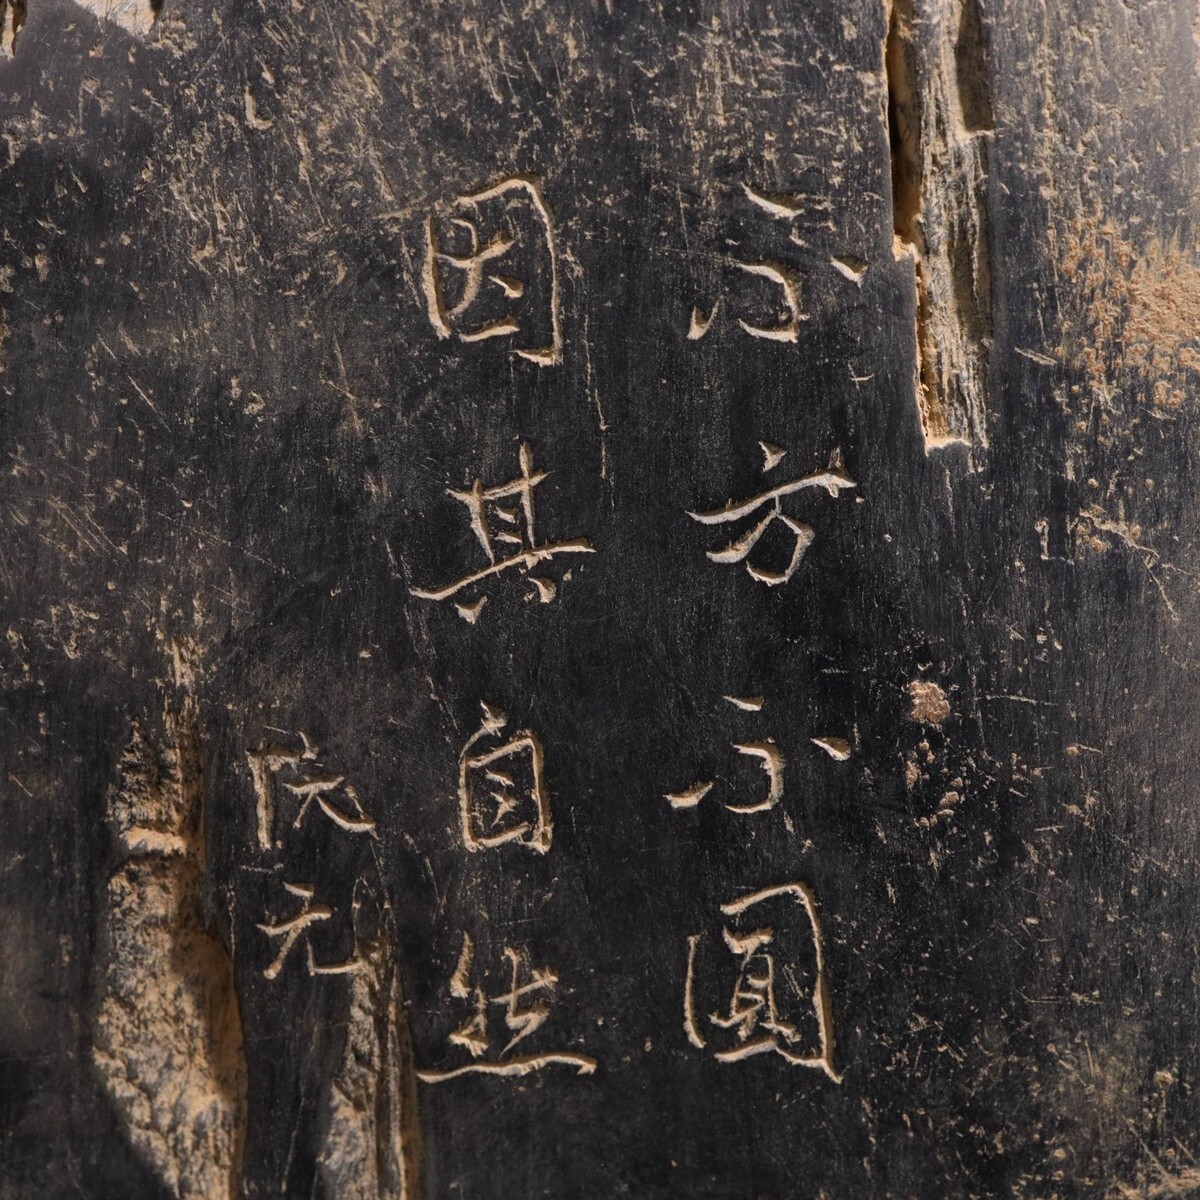 不方不圓
因其自然
辰元